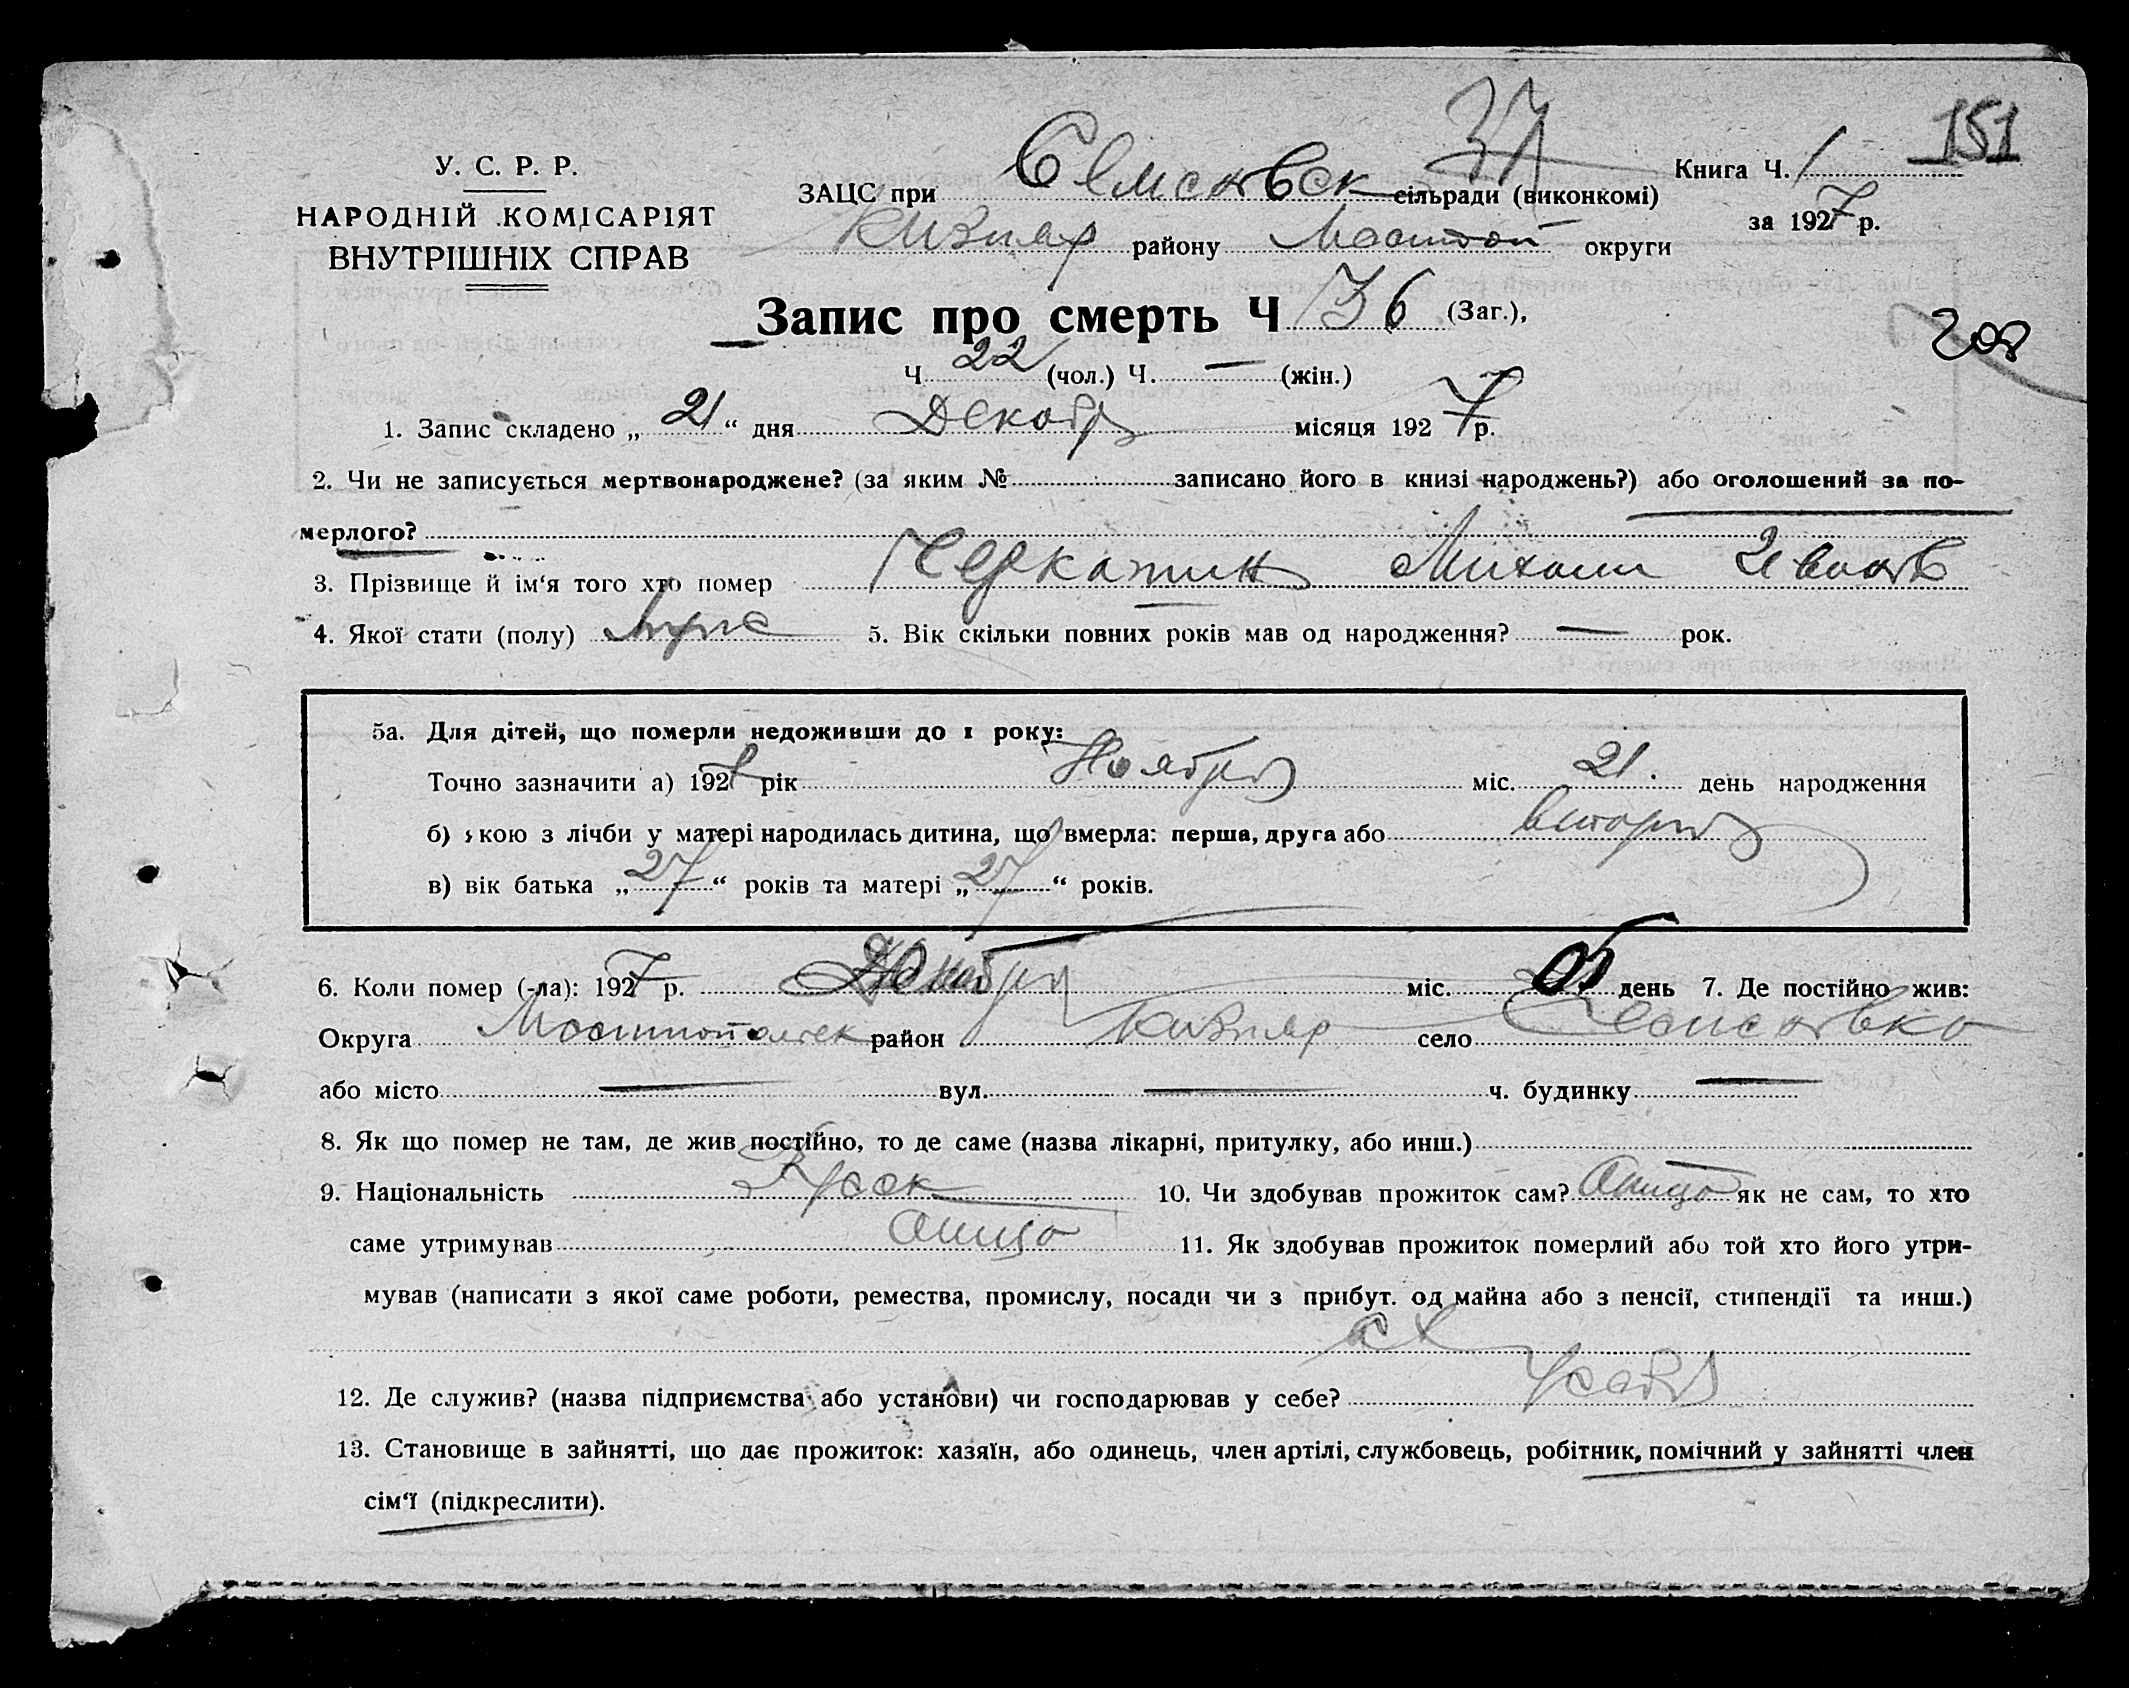 151
37
У. С. Р. Р.
НАРОДНІЙ КОМІСАРІЯТ
ВНУТРІШНІХ СПРАВ
ЗАЦС при сільради (виконкомі)
Книга Ч. 1
за 1927 р.
району округи
Запис про смерть Ч 36 (Заг.),
Ч 22 (чол.) Ч. — (жін.)
1. Запис складено „ 21 “ дня Декабр місяця 1927 р.
2. Чи не записується мертвонароджене? (за яким № записано його в книзі народжень?) або оголошений за по-
мерлого?
3. Прізвище й ім‘я того хто помер Черкашин Михаил Иванов
4. Якої стати (полу) Муж 5. Вік скільки повних років мав од народження? — рок.
5а. Для дітей, що померли недоживши до 1 року:
Точно зазначити а) 192 рік Ноября міс. 21. день народження
б) якою з лічби у матері народилась дитина, що вмерла: перша, друга або
в) вік батька „ 27 “ років та матері „ 27 “ років.
6. Коли помер (-ла): 1927 р. Декабря міс. день 7. Де постійно жив:
Округа район село
або місто — вул. — ч. будинку —
8. Як що помер не там, де жив постійно, то де саме (назва лікарні, притулку, або инш.)
9. Національність 10. Чи здобував прожиток сам? Отца як не сам, то хто
саме утримував Отца 11. Як здобував прожиток померлий або той хто його утри-
мував (написати з якої саме роботи, ремества, промислу, посади чи з прибут. од майна або з пенсії, стипендії та инш.)
сх
12. Де служив? (назва підприємства або установи) чи господарював у себе?
13. Становище в зайнятті, що дає прожиток: хазяїн, або одинець, член артілі, службовець, робітник, помічний у зайнятті член
сім‘ї (підкреслити).